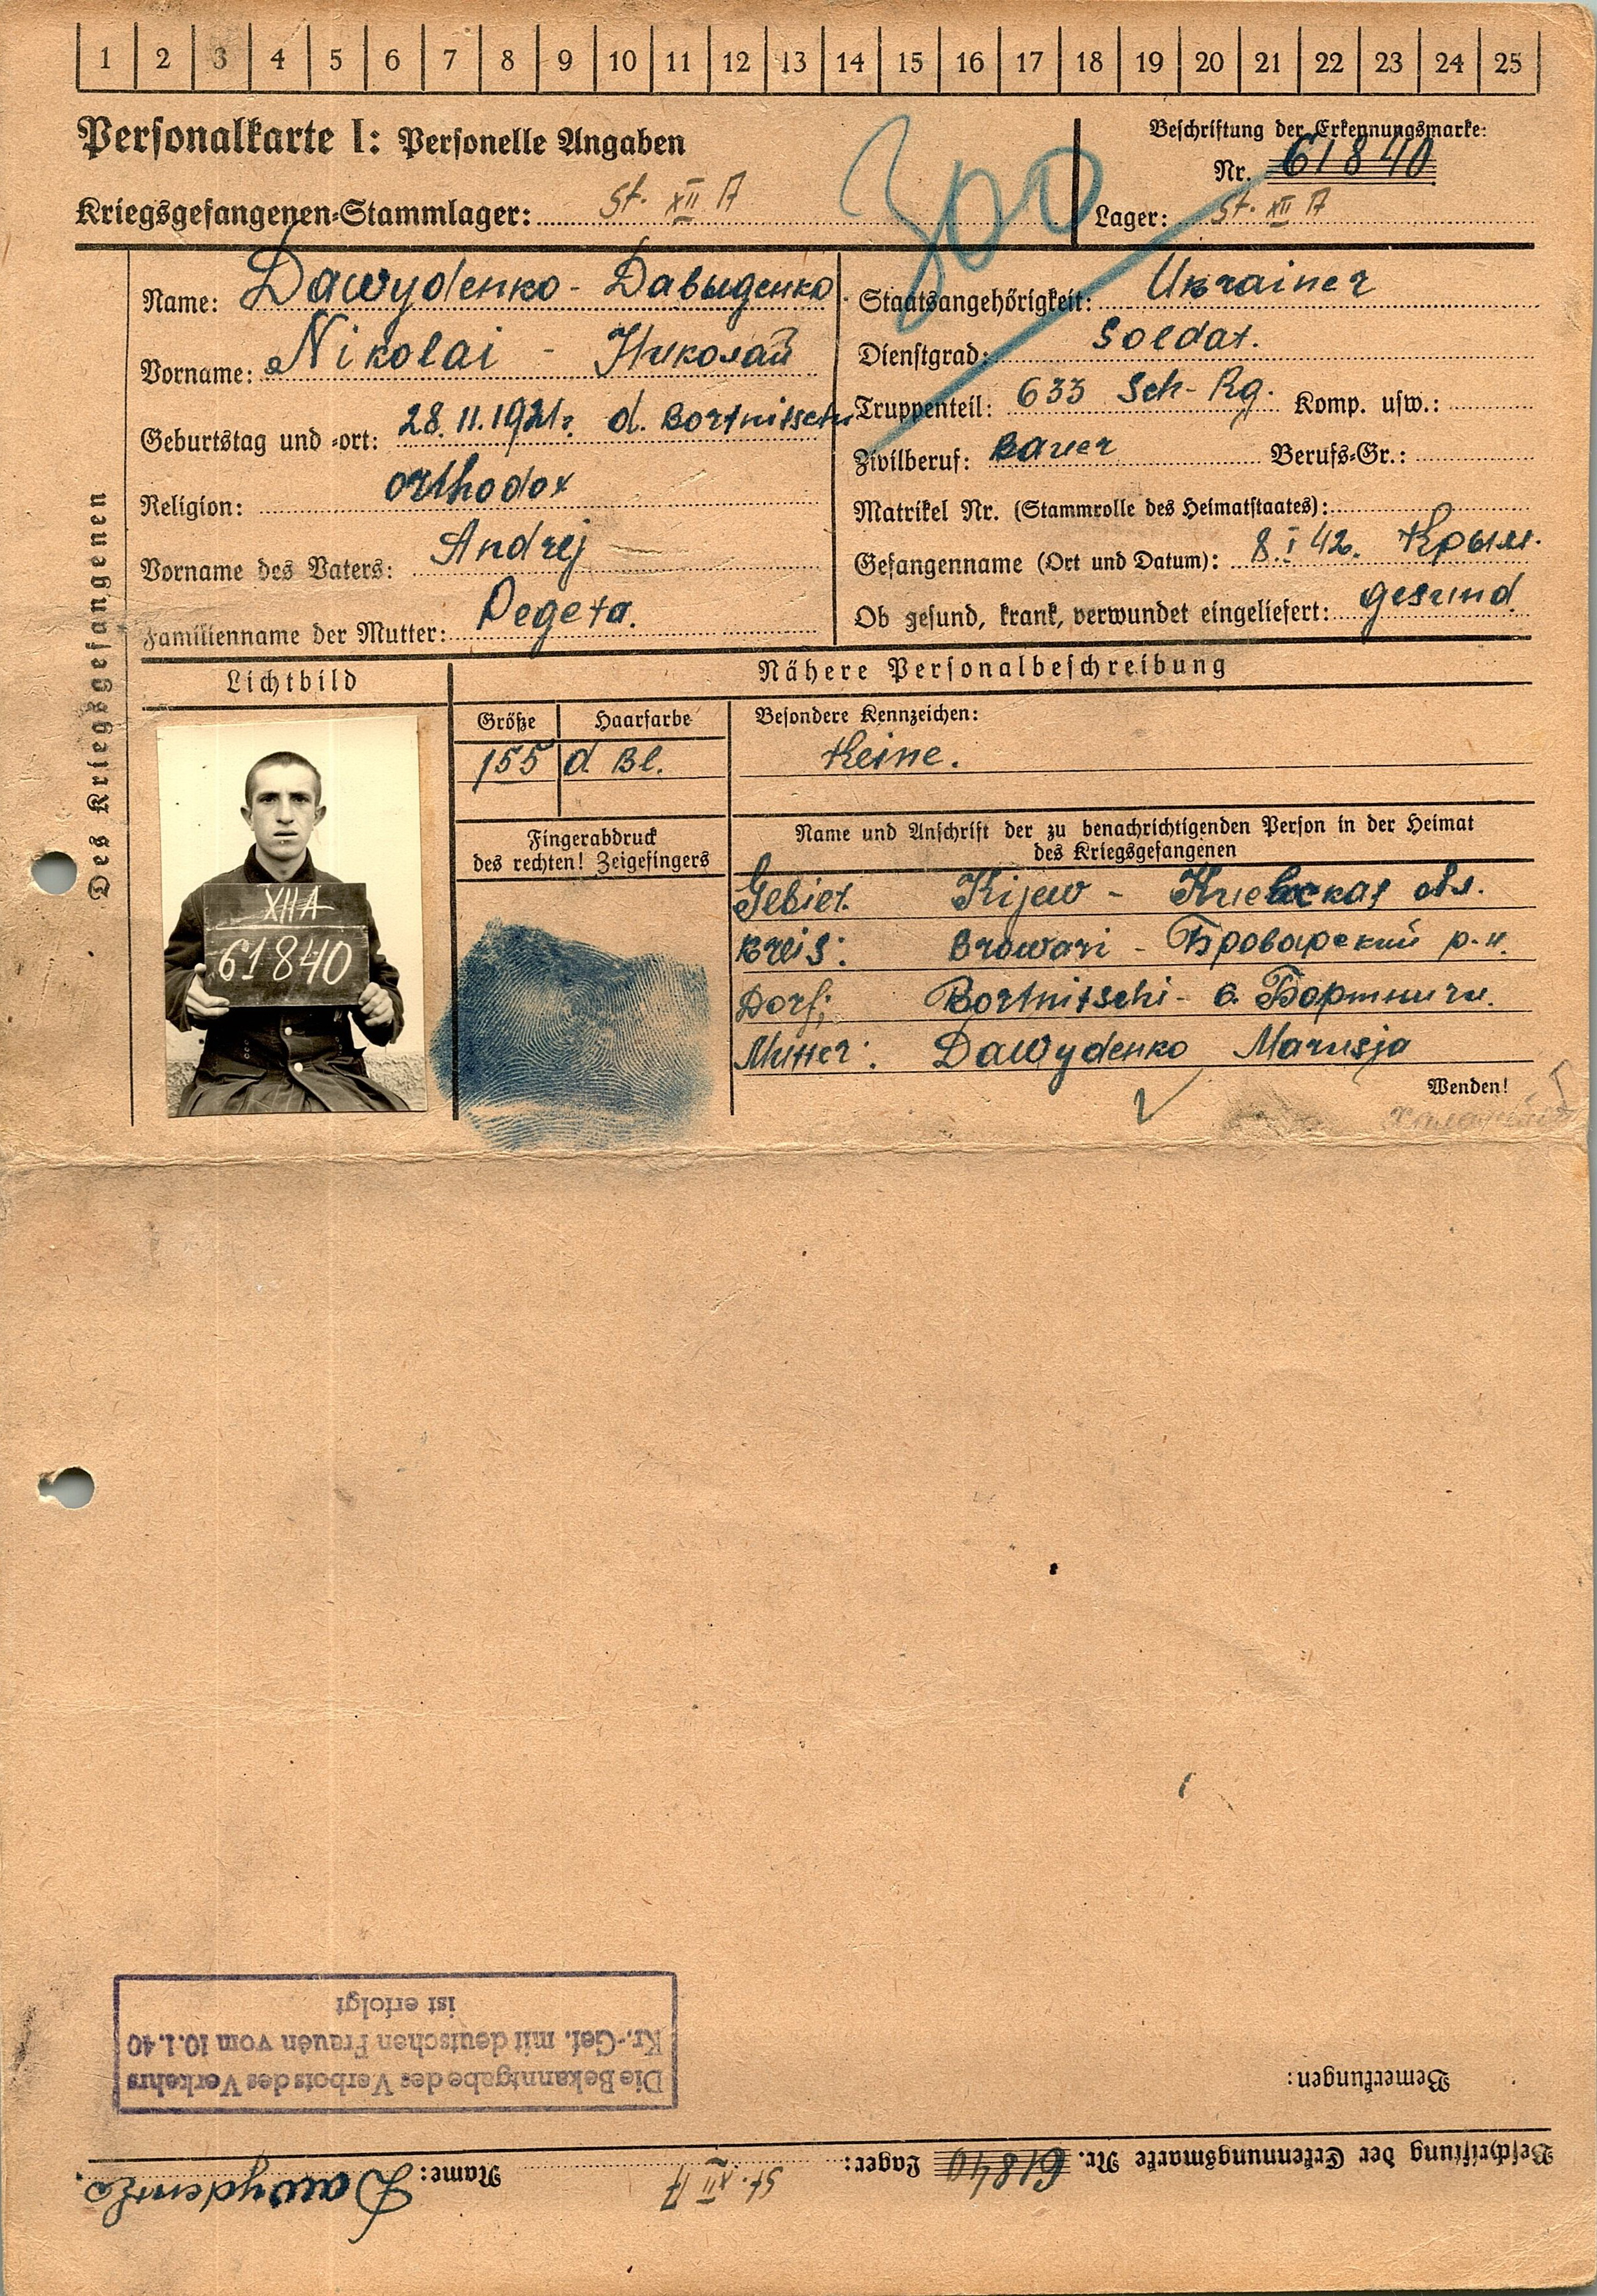 1 2 3 4 5 6 7 8 9 10 11 12 13 14 15 16 17 18 19 20 21 22 23 24 25
Personalkarte I: Personelle Angaben
Kriegsgefangenen-Stammlager: St. XII A
300
Beschriftung der Erkennungsmarke:
Nr. 61840
Lager: St. XII A
Des Kriegsgefangenen
Name: Dawydenko - Давыденко
Vorname: Nikolai - Николай
Geburtstag und -ort: 28.11.1921 d. Bortnitschi
Religion: orthodox
Vorname des Vaters: Andrej
Familienname der Mutter: Degeta.
Staatsangehörigkeit: Ukrainer
Dienstgrad: Soldat.
Truppenteil: 633 Sch-Rg. Komp. usw.:
Zivilberuf: Bauer Berufs-Gr.:
Matrikel Nr. (Stammrolle des Heimatstaates):
Gefangenname (Ort und Datum): 8.I 42. Крым.
Ob gesund, krank, verwundet eingeliefert: gesund
Lichtbild
XIIA
61840
Nähere Personalbeschreibung
Größe Haarfarbe
155 d Bl.
Besondere Kennzeichen:
Keine.
Fingerabdruck
des rechten! Zeigefingers
Name und Anschrift der zu benachrichtigenden Person in der Heimat
des Kriegsgefangenen
Gebiet Kijew - Киевская обл.
Kreis: Browari - Броварский р-н.
Dorf: Bortnitschi - с. Бортничи.
Mutter: Dawydenko Marusja
Wenden!
Die Bekanntgabe des Verbots des Verkehrs
Kr.-Gef. mit deutschen Frauen vom 10.1.40
ist erfolgt
Bemerkungen:
Beschriftung der Erkennungsmarke Nr. 61840 Lager: St. XII A Name: Dawydenko.